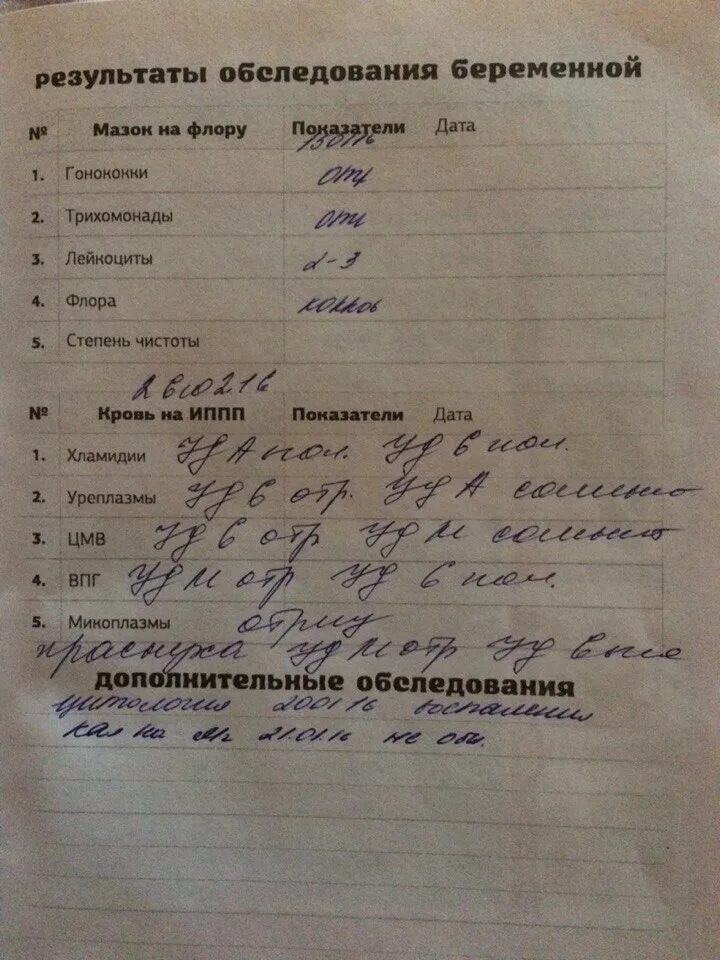 результаты обследования беременной
№ Мазок на флору Показатели Дата
1. Гонококки отр
2. Трихомонады отр
3. Лейкоциты 2-3
4. Флора
5. Степень чистоты
№ Кровь на ИППП Показатели Дата
1. Хламидии Jg A пол. Jg G пол.
2. Уреплазмы Jg G отр. Jg A сомнит
3. ЦМВ Jg G отр Jg M сомнит
4. ВПГ Jg M отр Jg G пол.
5. Микоплазмы
краснуха Jg M отр Jg G
дополнительные обследования
цитология 200116 воспаления
кал на 21.01.16 не обн.